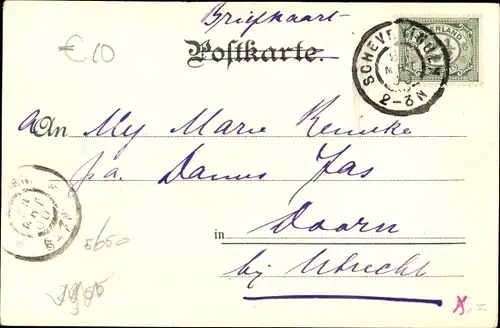 Briefkaart
€ 10
Postkarte.
NEDERLAND
SCHEVENINGEN
2-3N
An Mej Marie
p.a. Dames Jas
in Doorn
bij Utrecht
5650
1905